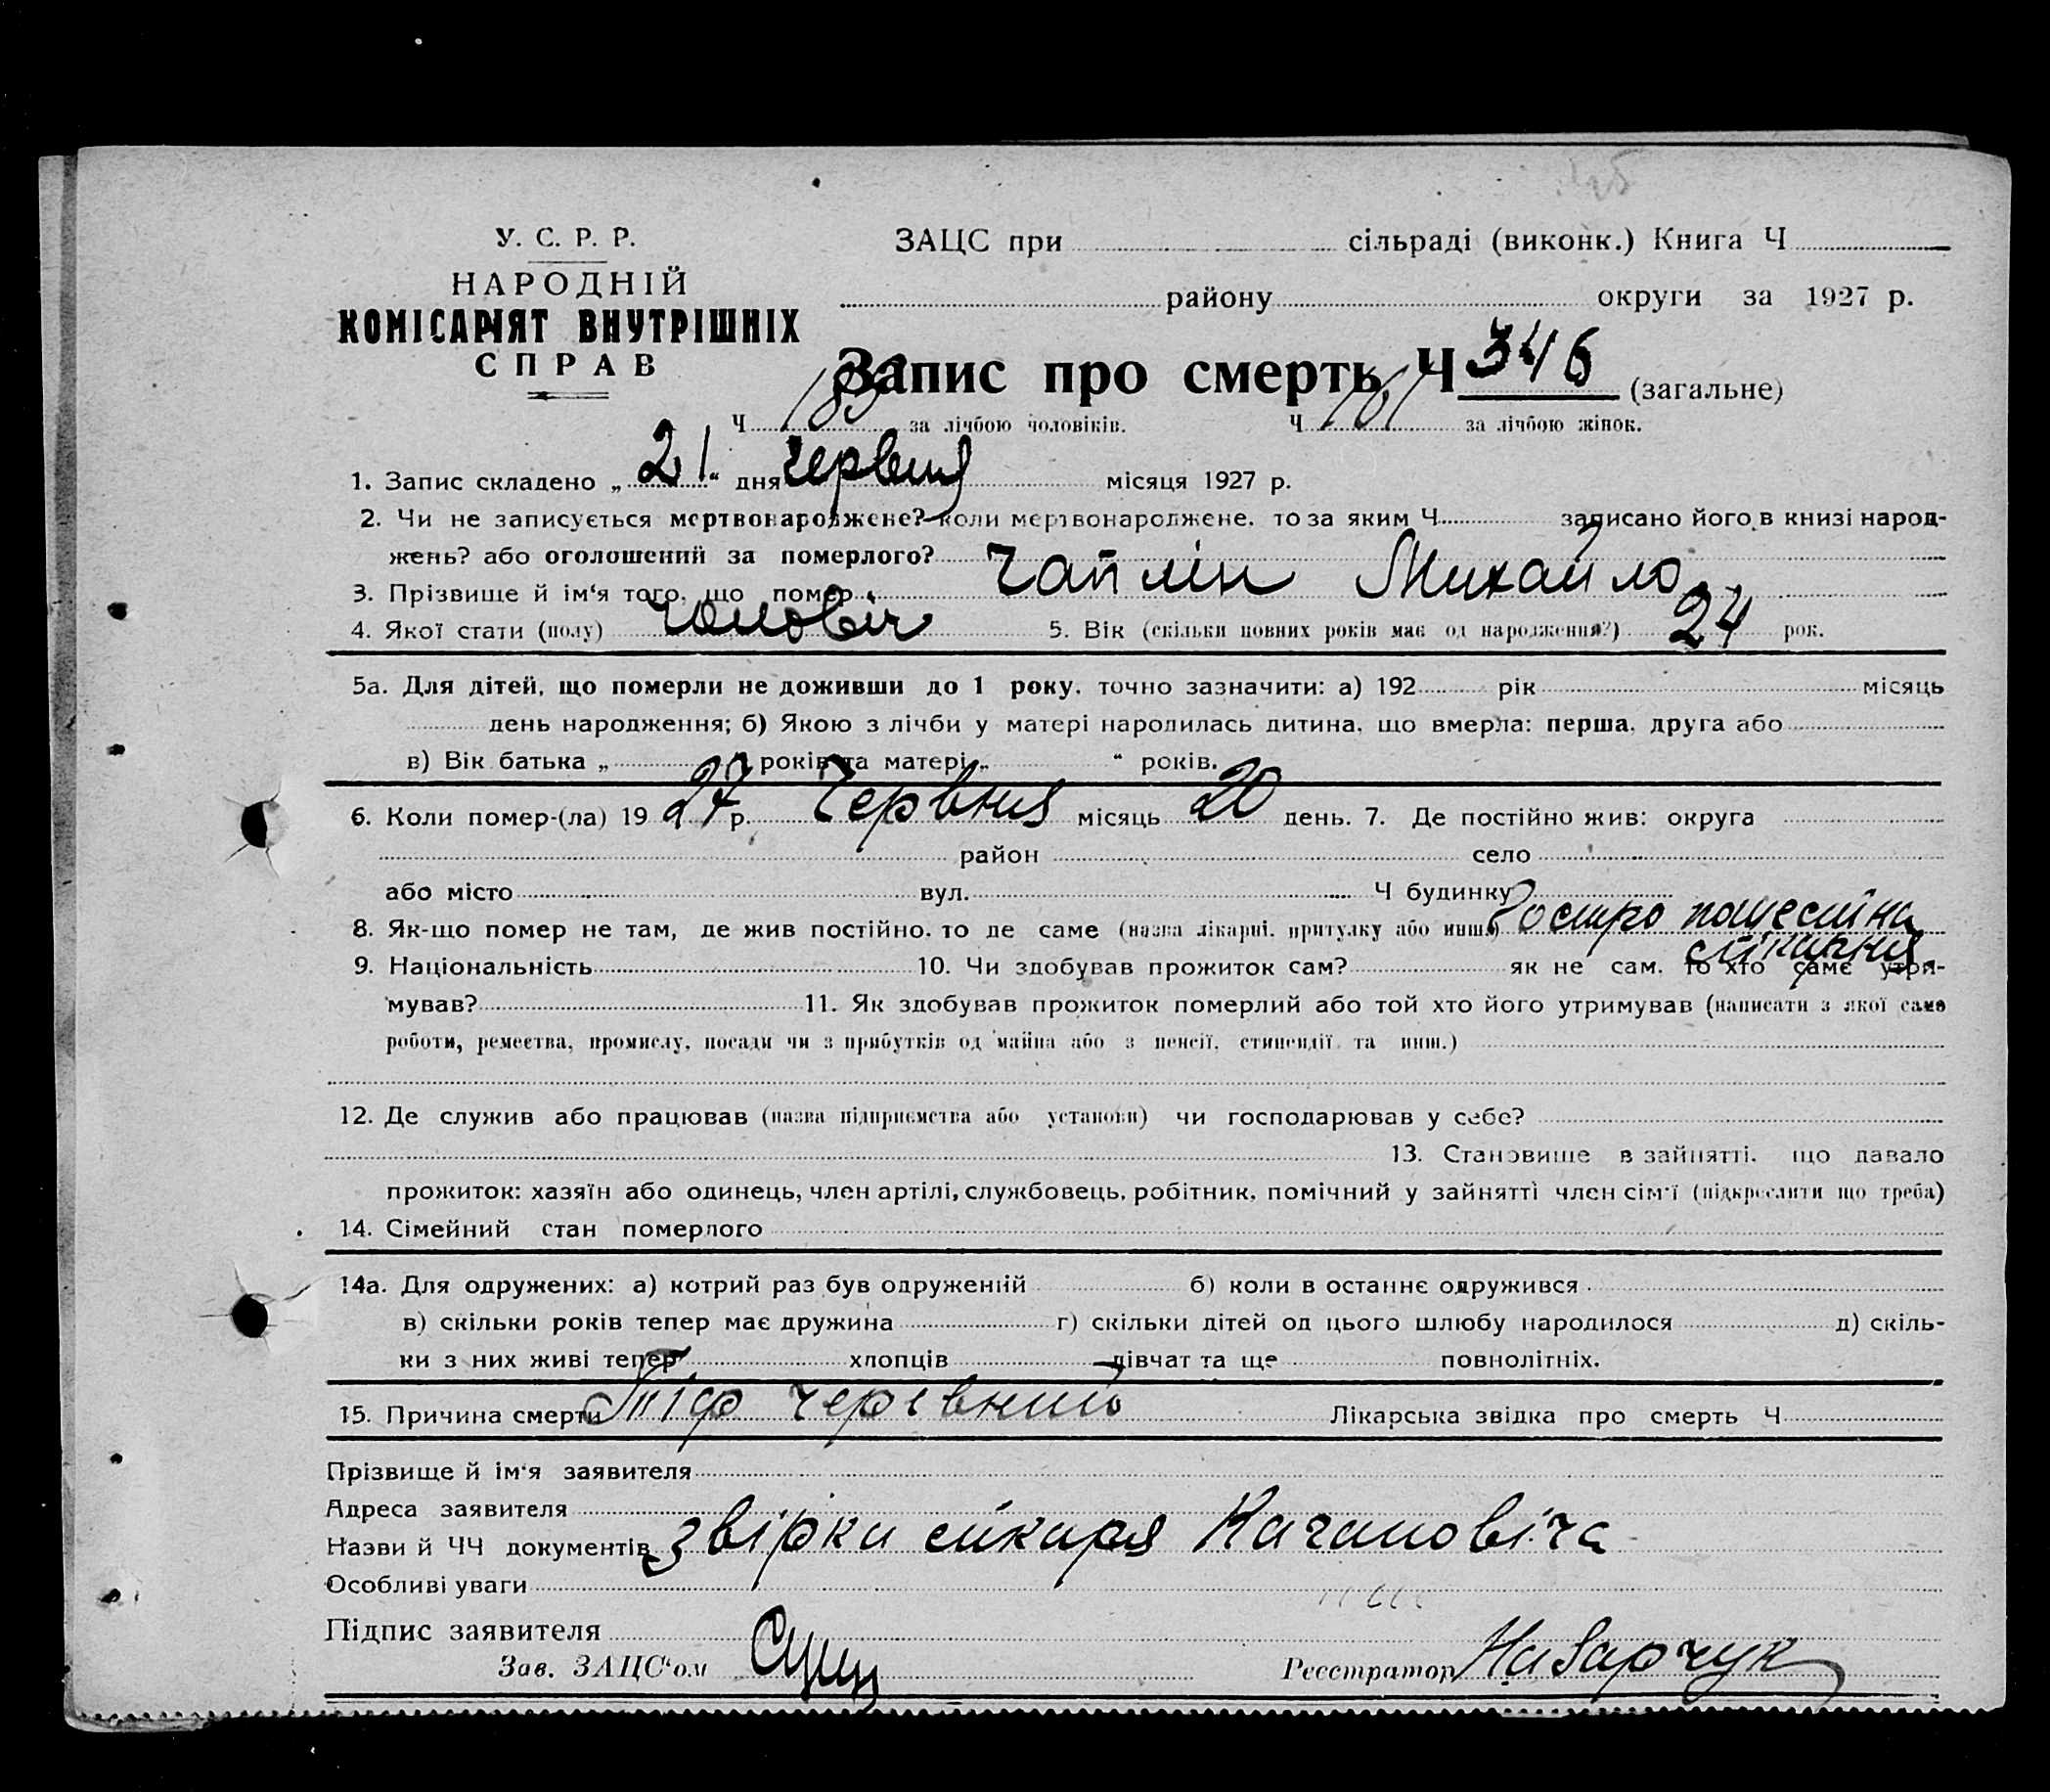 У. С. Р. Р.
НАРОДНІЙ
КОМІСАРІЯТ ВНУТРІШНІХ
СПРАВ
ЗАЦС при сільраді (виконк.) Книга Ч
району округи за 1927 р.
Запис про смерть Ч 346 (загальне)
Ч 185 за лічбою чоловіків. Ч 161 за лічбою жінок.
1. Запис складено „21“ дня червня місяця 1927 р.
2. Чи не записується мертвонароджене? коли мертвонароджене, то за яким Ч записано його в книзі народ-
жень? або оголошений за померлого?
3. Прізвище й ім‘я того, що помер Чаплін Михайло
4. Якої стати (полу) чоловіч 5. Вік (скільки повних років має од народження?) 24 рок.
5а. Для дітей, що померли не доживши до 1 року, точно зазначити: а) 192 рік місяць
день народження; б) Якою з лічби у матері народилась дитина, що вмерла: перша, друга або
в) Вік батька „ років та матері „ “ років.
6. Коли помер-(ла) 1927 р. Червня місяць 20 день. 7. Де постійно жив: округа
район село
або місто вул. Ч будинку
8. Як-що помер не там, де жив постійно, то де саме (назва лікарні, притулку або инш.)
9. Національність 10. Чи здобував прожиток сам? як не сам, то хто саме утри-
мував? 11. Як здобував прожиток померлий або той хто його утримував (написати з якої саме
роботи, ремества, промислу, посади чи з прибутків од майна або з пенсії, стипендії та инш.)
12. Де служив або працював (назва підприємства або установи) чи господарював у себе?
13. Становище в зайнятті, що давало
прожиток: хазяїн або одинець, член артілі, службовець, робітник, помічний у зайнятті член сім‘ї (підкреслити що треба)
14. Сімейний стан померлого
14а. Для одружених: а) котрий раз був одружений б) коли в останнє одружився
в) скільки років тепер має дружина г) скільки дітей од цього шлюбу народилося д) скіль-
ки з них живі тепер хлопців дівчат та ще повнолітніх.
15. Причина смерти Тіф черевний Лікарська звідка про смерть Ч
Прізвище й ім‘я заявителя
Адреса заявителя
Назви й ЧЧ документів звірка лікаря Качановіча
Особливі уваги
Підпис заявителя
Зав. ЗАЦС‘ом
Реєстратор Назарчук